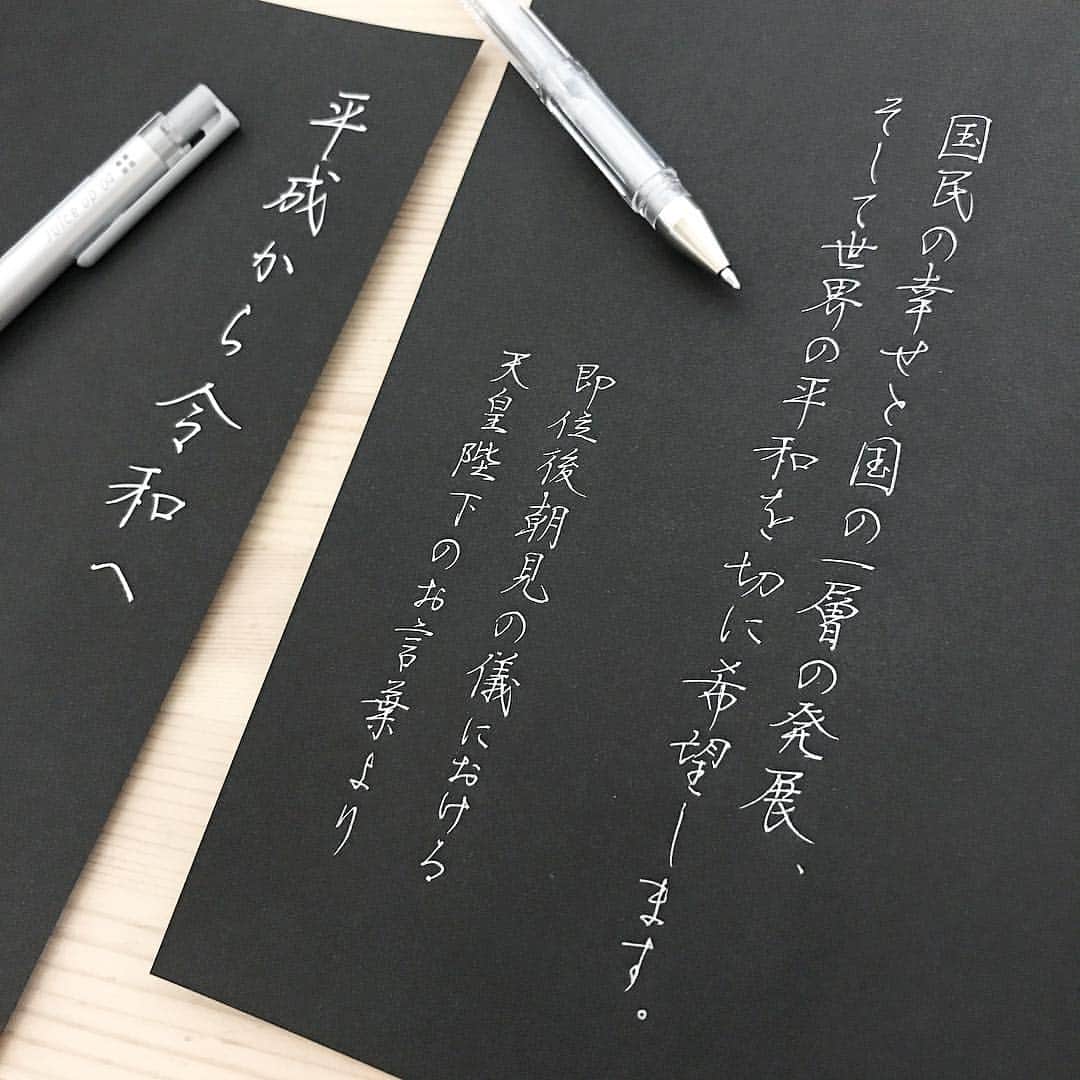 国民の幸せと国の一層の発展、
そして世界の平和を切に希望します。
即位後朝見の儀における
天皇陛下のお言葉より
平成から令和へ
Juice up 03